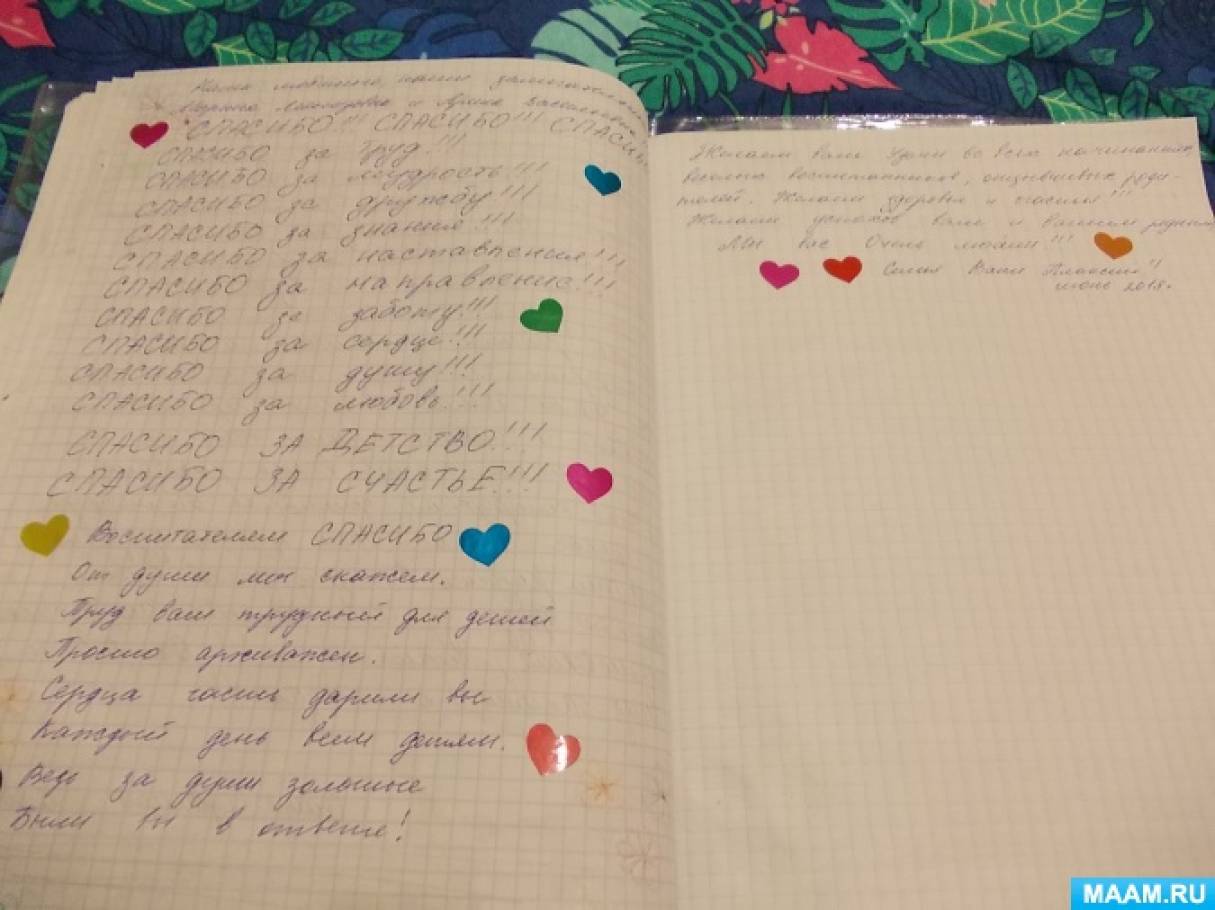 Наши любимые, наши замечательные
Марина Викторовна и Арина Васильевна
СПАСИБО!!! СПАСИБО!!! СПАСИБО
СПАСИБО за труд!!!
СПАСИБО за мудрость!!!
СПАСИБО за дружбу!!!
СПАСИБО за знания!!!
СПАСИБО за наставления!!!
СПАСИБО за направление!!!
СПАСИБО за заботу!!!
СПАСИБО за сердце!!!
СПАСИБО за душу!!!
СПАСИБО за любовь!!!
СПАСИБО ЗА ДЕТСТВО!!!
СПАСИБО ЗА СЧАСТЬЕ!!!
Воспитателям СПАСИБО
От души мы скажем.
Труд ваш трудный для детей
Просто архиважен.
Сердца часть дарили вы
Каждый день всем детям.
Ведь за души золотые
Были вы в ответе!
Желаем вам удачи во всех начинаниях,
веселых воспитанников, отзывчивых роди-
телей. Желаем здоровья и счастья!!!
Желаем успехов вам и вашим родным
Мы вас Очень любим!!!
Семья Вани
июнь 2018г.
MAAM.RU